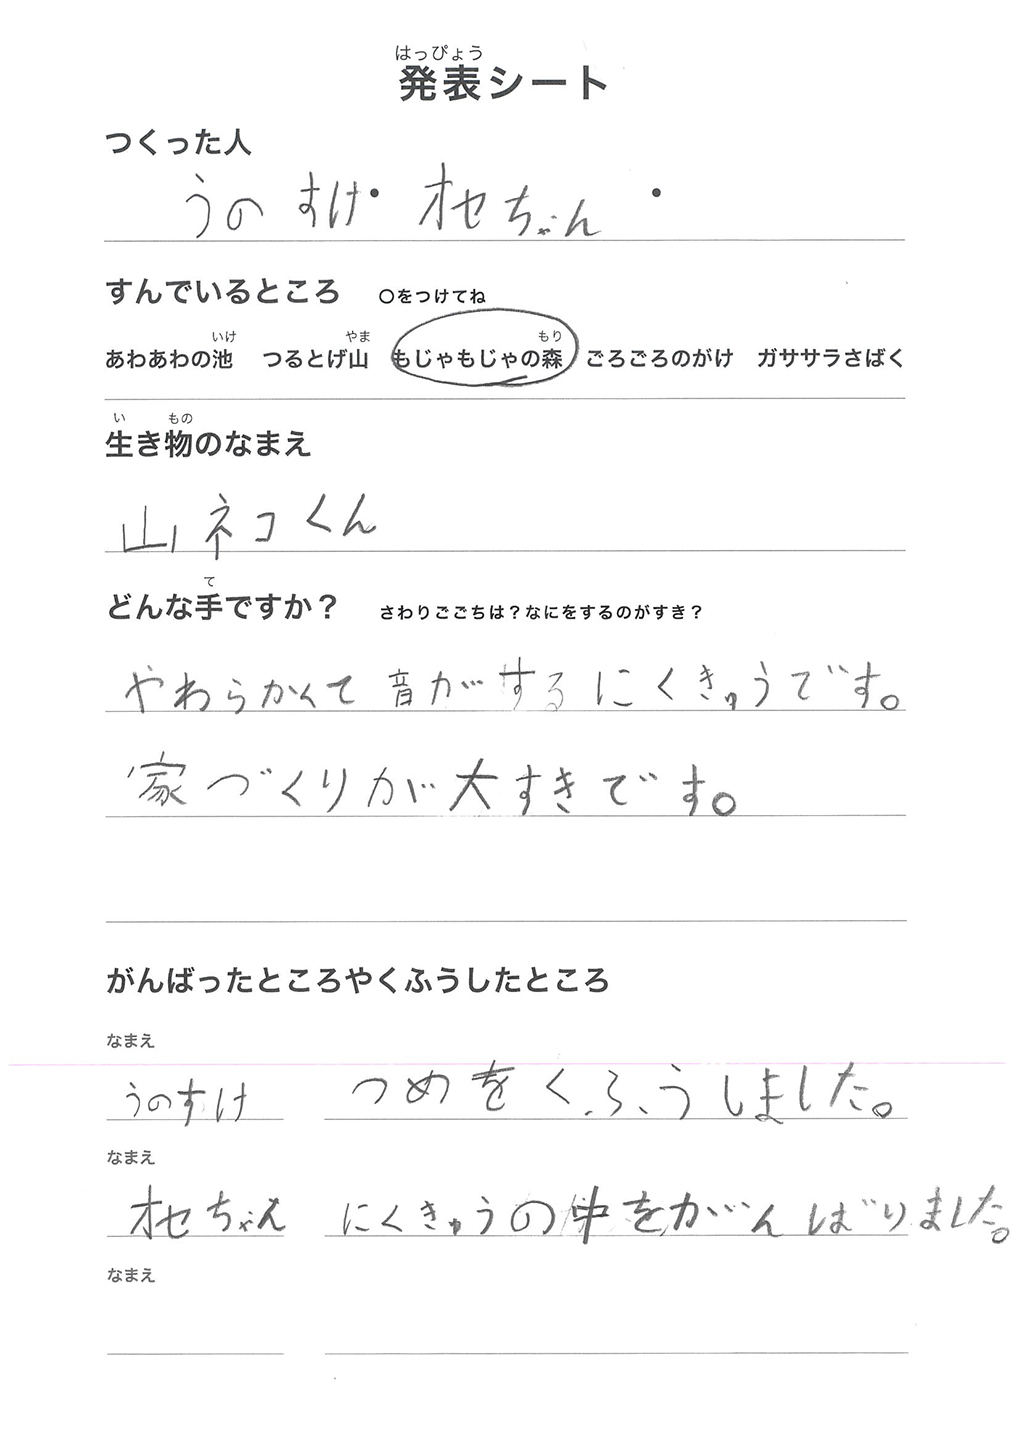 はっぴょう
発表シート
つくった人
うのすけ・オセちゃん ・
すんでいるところ ○をつけてね
いけ やま もり
あわあわの池 つるとげ山 もじゃもじゃの森 ごろごろのがけ ガササラさばく
い もの
生き物のなまえ
山ネコくん
て
どんな手ですか？ さわりごこちは？なにをするのがすき？
やわらかくて音がするにくきゅうです。
家づくりが大すきです。
がんばったところやくふうしたところ
なまえ
うのすけ つめをくふうしました。
なまえ
オセちゃん にくきゅうの中をがんばりました。
なまえ